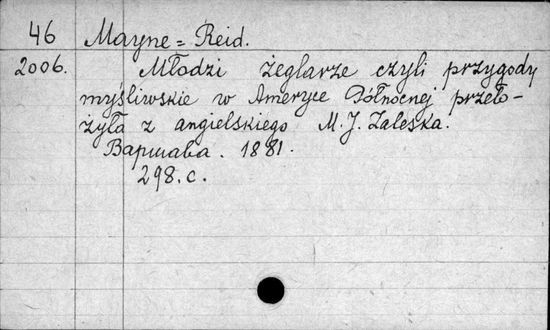 46 Mayne=Reid.
2006. Młodzi żeglarze czyli przygody
myśliwskie w Ameryce Północnej przeło-
żyła z angielskiego M. J. Zaleska.
Варшава. 1881.
298. с.